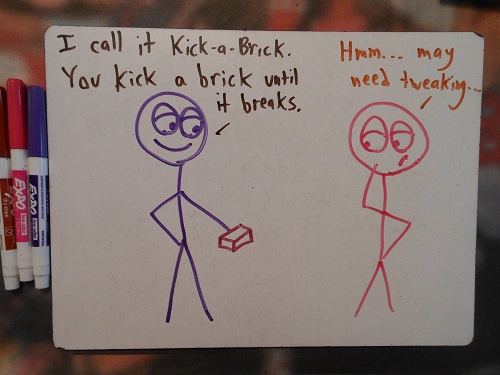 I call it Kick-a-Brick.
You kick a brick until
it breaks.
Hmm... may
need tweaking...
EXPO
EXPO